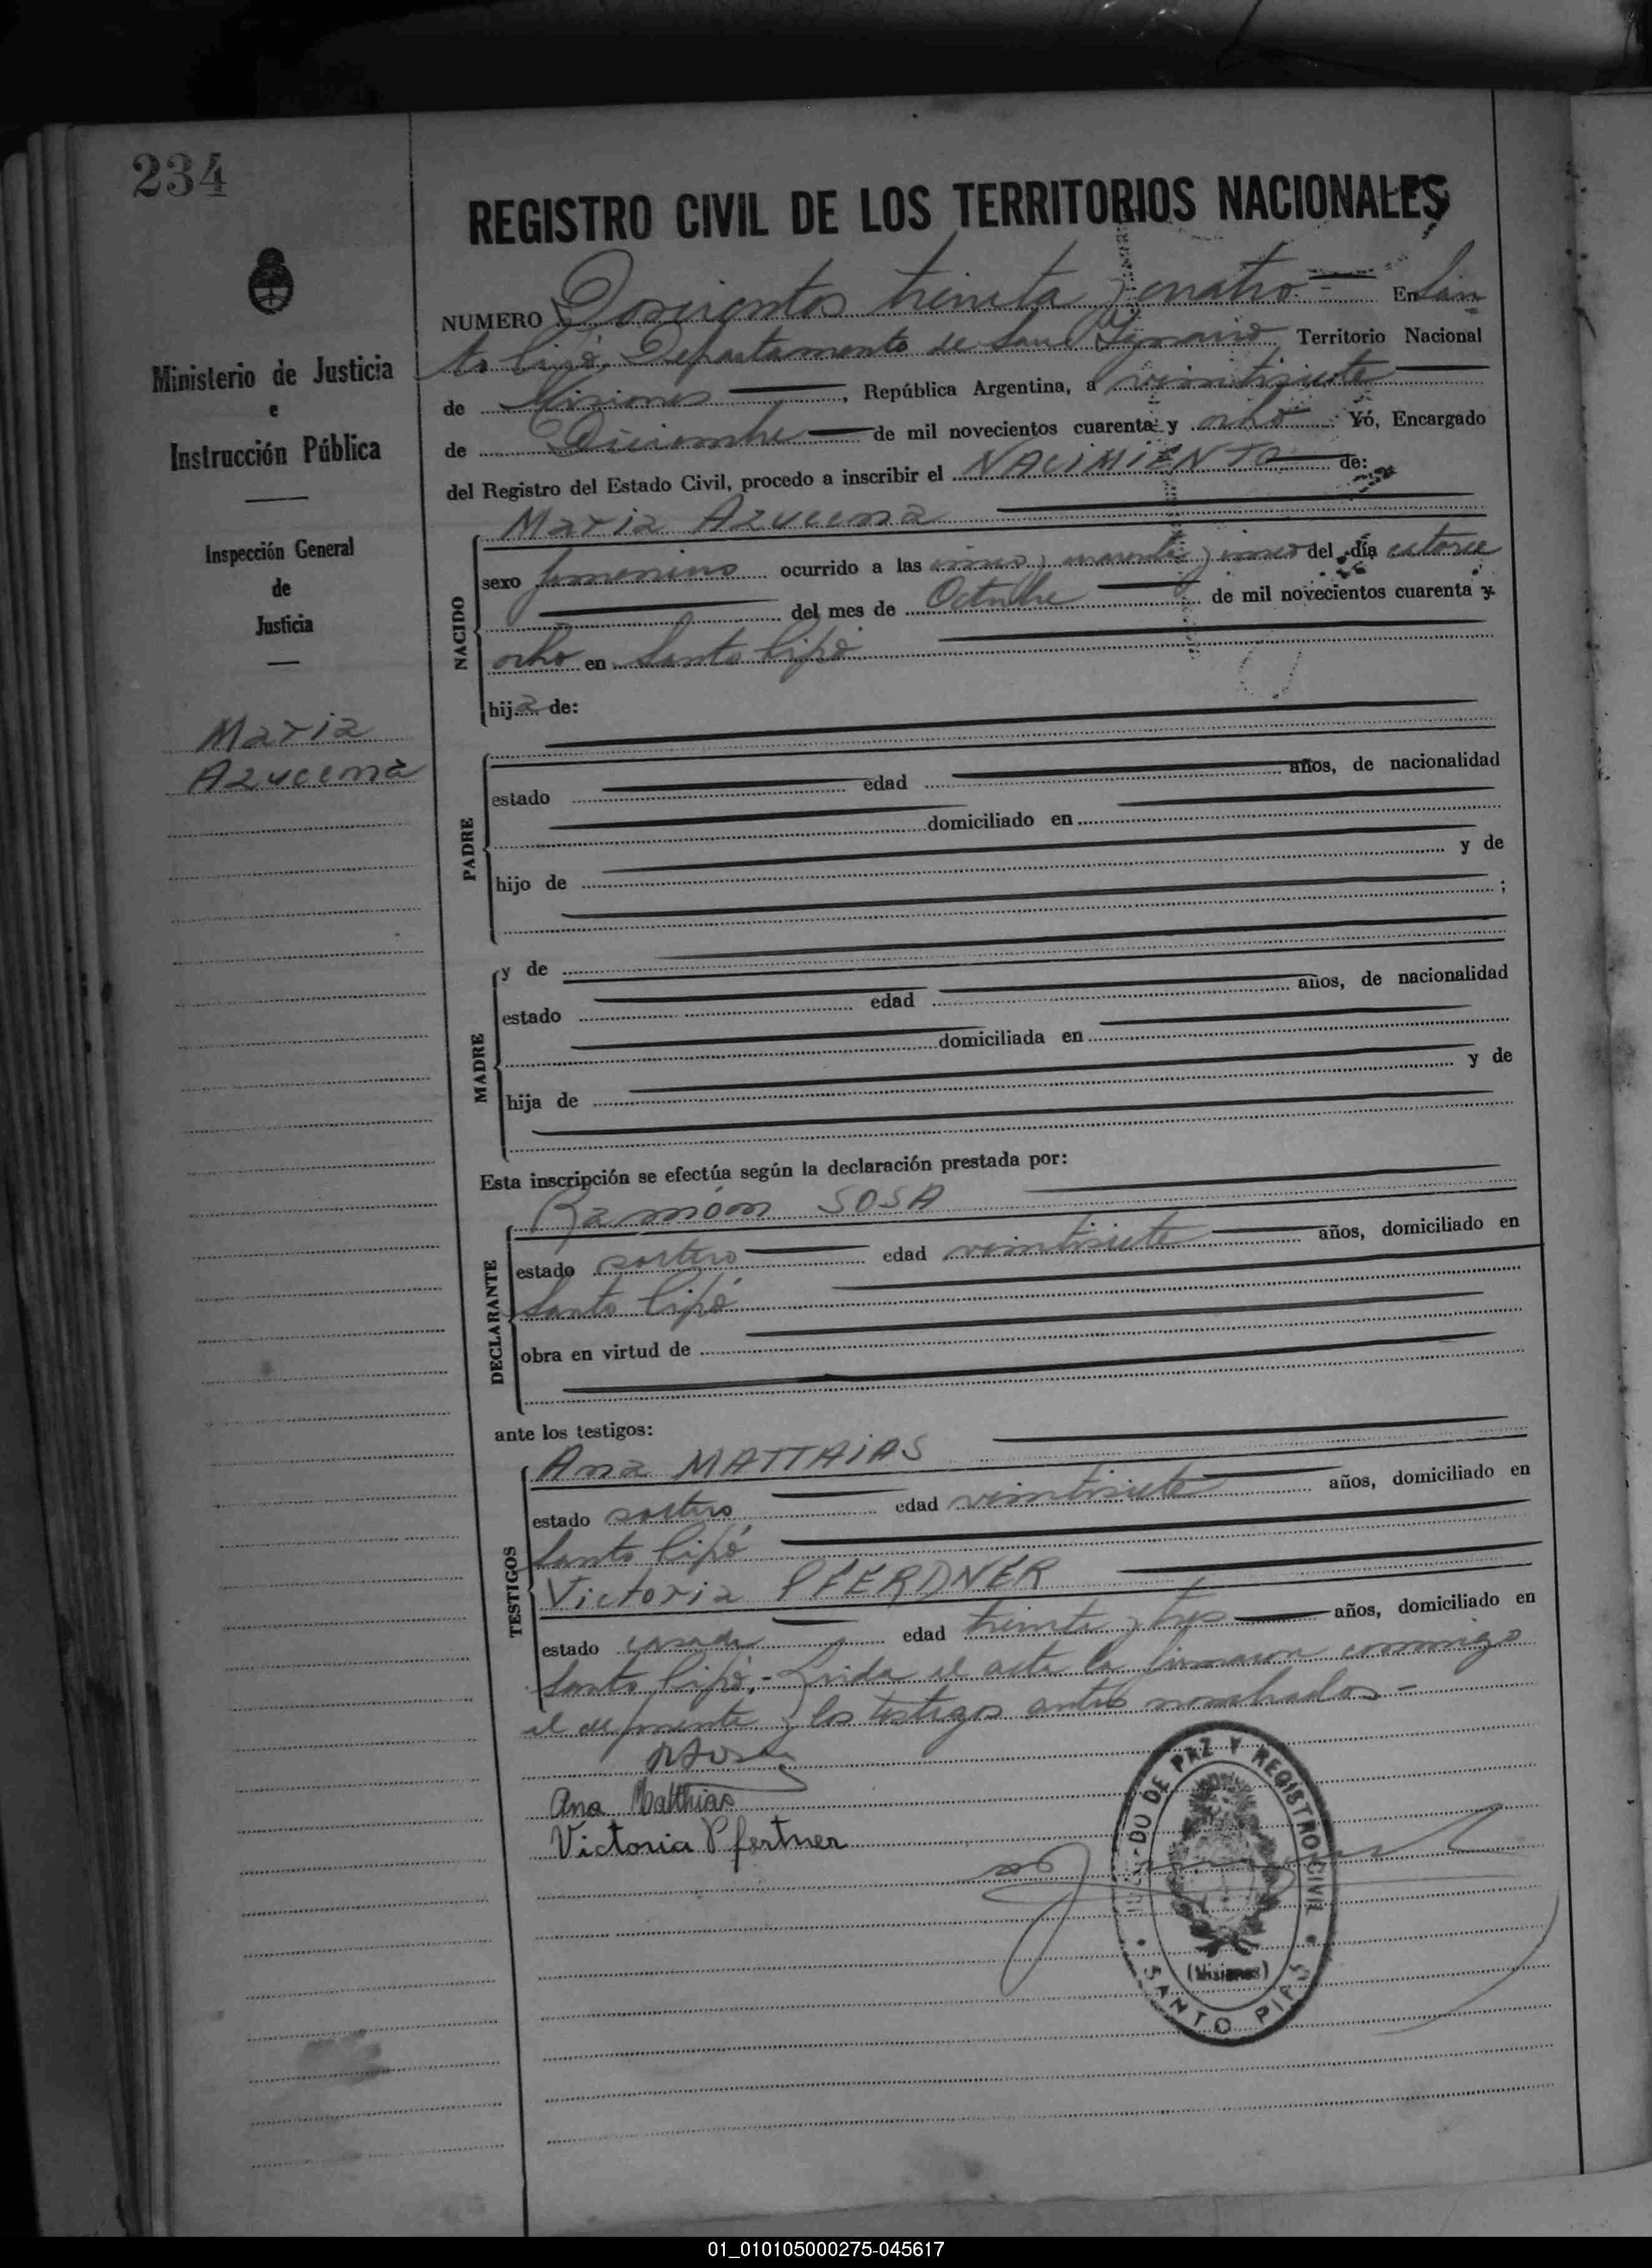 234
REGISTRO CIVIL DE LOS TERRITORIOS NACIONALES
Ministerio de Justicia
e
Instrucción Pública
Inspección General
de
Justicia
Maria
Azucena
NUMERO Doscientos treinta y cuatro.- En San
to Pipó, Departamento de San Ignacio Territorio Nacional
de Misiones, República Argentina, a veintisiete
de Diciembre de mil novecientos cuarenta y ocho Yó, Encargado
del Registro del Estado Civil, procedo a inscribir el NACIMIENTO de:
NACIDO
Maria Azucena
sexo femenino ocurrido a las cinco y cuarenta y cinco del día catorce
del mes de Octubre de mil novecientos cuarenta y
ocho en Santo Pipó
hija de:
PADRE
estado edad años, de nacionalidad
domiciliado en
hijo de y de
;
MADRE
y de
estado edad años, de nacionalidad
domiciliada en
hija de y de
Esta inscripción se efectúa según la declaración prestada por:
DECLARANTE
Ramón SOSA
estado soltero edad veintisiete años, domiciliado en
Santo Pipó
obra en virtud de
ante los testigos:
TESTIGOS
Ana MATTHIAS
estado soltero edad veintisiete años, domiciliado en
Santo Pipó
Victoria PFERDNER
estado casada edad treinta y tres años, domiciliado en
Santo Pipó.- Leida el acta la firmaron conmigo
el deponente y los testigos antes nombrados-
RSosa
Ana Matthias
Victoria Pfertner
JUZGADO DE PAZ Y REGISTRO CIVIL
(Misiones)
SANTO PIPÓ
01_010105000275-045617